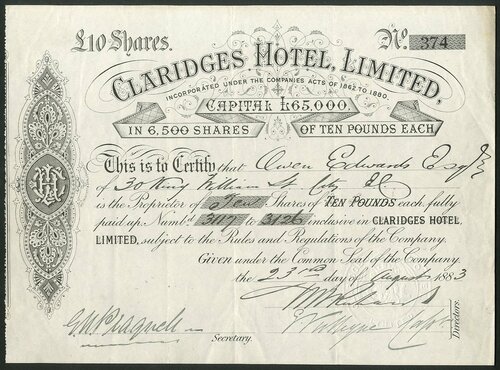 £10 Shares. No. 374
CLARIDGES HOTEL, LIMITED,
INCORPORATED UNDER THE COMPANIES ACTS OF 1862 TO 1880.
CAPITAL £65,000.
IN 6,500 SHARES OF TEN POUNDS EACH
This is to Certify that Owen Edwards Esqr
of 30 King William St. City E.C.
is the Proprietor of Ten Shares of TEN POUNDS each, fully
paid up. Numbd. 3117 to 3126 inclusive in CLARIDGES HOTEL,
LIMITED, subject to the Rules and Regulations of the Company.
Given under the Common Seal of the Company
the 23rd day of August 1883
Directors.
Secretary.